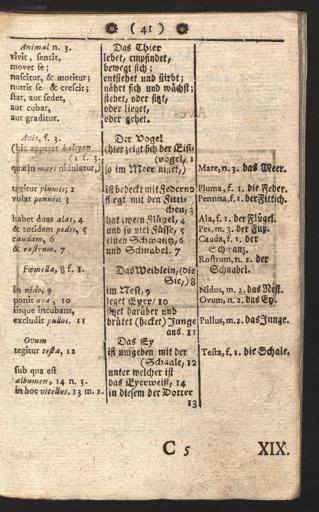 ( 41 )
Animal n. 3.
vivit, sentit,
movet se;
nascitur, & moritur;
nutrit se & crescit;
stat, aut sedet,
aut cubat,
aut graditur.
Avis, f. 3.
(hîc apparet halcyon
1 f. 3.
quæ in mari nidulatur,)
tegitur plumis; 2
volat pennis; 3
habet duas alas, 4
& totidem pedes, 5
caudam, 6
& rostrum. 7
Fœmella, 8 f. 1.
in nido, 9
ponit ova, 10
iisque incubans,
excludit pullos. 11
Ovum
tegitur testa, 12
sub qua est
albumen, 14 n. 3.
in hoc vitellus. 13 m. 2.
Das Thier
lebet, empfindet,
beweget sich;
entstehet und stirbt;
nährt sich und wächst;
stehet, oder sitzt,
oder lieget,
oder gehet.
Der Vogel
(hier zeigt sich der Eis-
vogel, 1
so im Meer nistet,)
ist bedeckt mit Federn 2
fliegt mit den Fitti-
chen, 3
hat zween Flügel, 4
und so viel Füsse, 5
einen Schwantz, 6
und Schnabel. 7
Das Weiblein, (die
Sie,) 8
im Nest, 9
leget Eyer / 10
sitzt darüber und
brütet (hecket) Junge
aus. 11
Das Ey
ist umgeben mit der
(Schaale, 12
unter welcher ist
das Eyerweiß, 14
in diesem der Dotter
13
Mare, n. 3. das Meer.
Pluma, f. 1. die Feder.
Pennna, f. 1. der Fittich.
Ala, f. 1. der Flügel.
Pes, m. 3. der Fuß.
Cauda, f. 1. der
Schwanz.
Rostrum, n. 2. der
Schnabel.
Nidus, m. 2. das Nest.
Ovum, n. 2. das Ey.
Pullus, m. 2. das Junge.
Testa, f. 1. die Schale.
C 5
XIX.